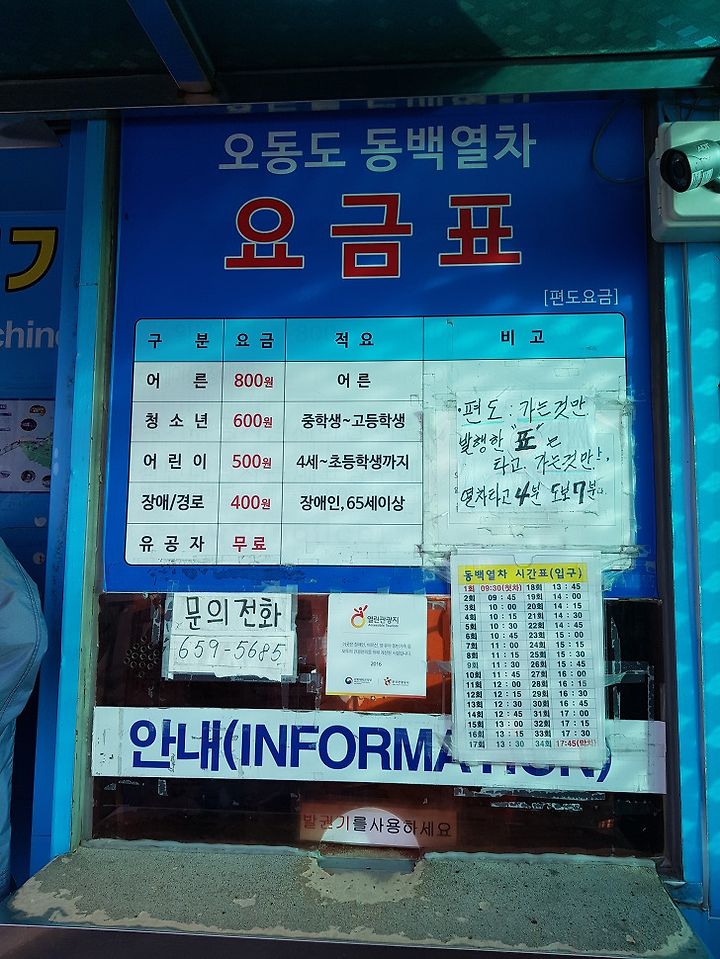 오동도 동백열차
요금표
[편도요금]
구 분 요금 적요 비고
어 른 800원 어른
청소년 600원 중학생~고등학생
어린이 500원 4세~초등학생까지
장애/경로 400원 장애인, 65세이상
유공자 무료
·편도: 가는것만
발행한 "표"는
타고 가는것만!
열차타고 4분 도보 7분.
동백열차 시간표(입구)
1회 09:30(첫차) 18회 13:45
2회 09:45 19회 14:00
3회 10:00 20회 14:15
4회 10:15 21회 14:30
5회 10:30 22회 14:45
6회 10:45 23회 15:00
7회 11:00 24회 15:15
8회 11:15 25회 15:30
9회 11:30 26회 15:45
10회 11:45 27회 16:00
11회 12:00 28회 16:15
12회 12:15 29회 16:30
13회 12:30 30회 16:45
14회 12:45 31회 17:00
15회 13:00 32회 17:15
16회 13:15 33회 17:30
17회 13:30 34회 17:45(막차)
문의전화
659-5685
열린관광지
Accessible Tourism
2016
안내(INFORMATION)
발권기를사용하세요
기
chine